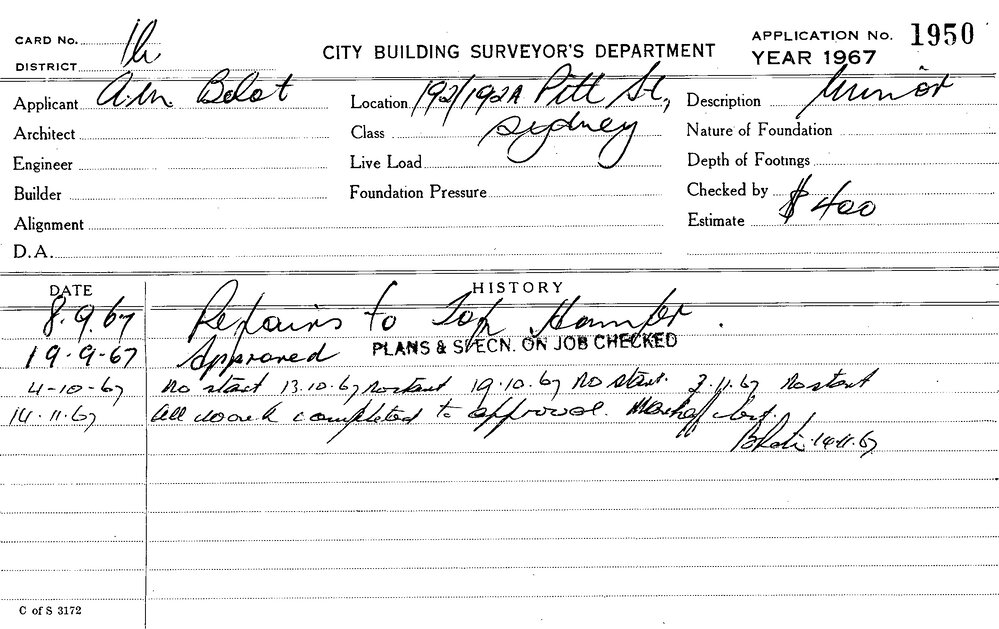 CARD No. 1h
CITY BUILDING SURVEYOR'S DEPARTMENT
APPLICATION No. 1950
DISTRICT
YEAR 1967
Applicant A.M. Belot
Location 192/192A Pitt St.,
Description Minor
Architect
Class Sydney
Nature of Foundation
Engineer
Live Load
Depth of Footings
Builder
Foundation Pressure
Checked by
Alignment
Estimate $400
D.A.
DATE
HISTORY
8.9.67 Repairs to Top Hamper.
19-9-67 Approved PLANS & SPECN. ON JOB CHECKED
4-10-67 No start 13.10.67 No start 19.10.67 No start. 2.11.67 No start
14.11.67 All work completed to approval.
14.11.67
C of S 3172